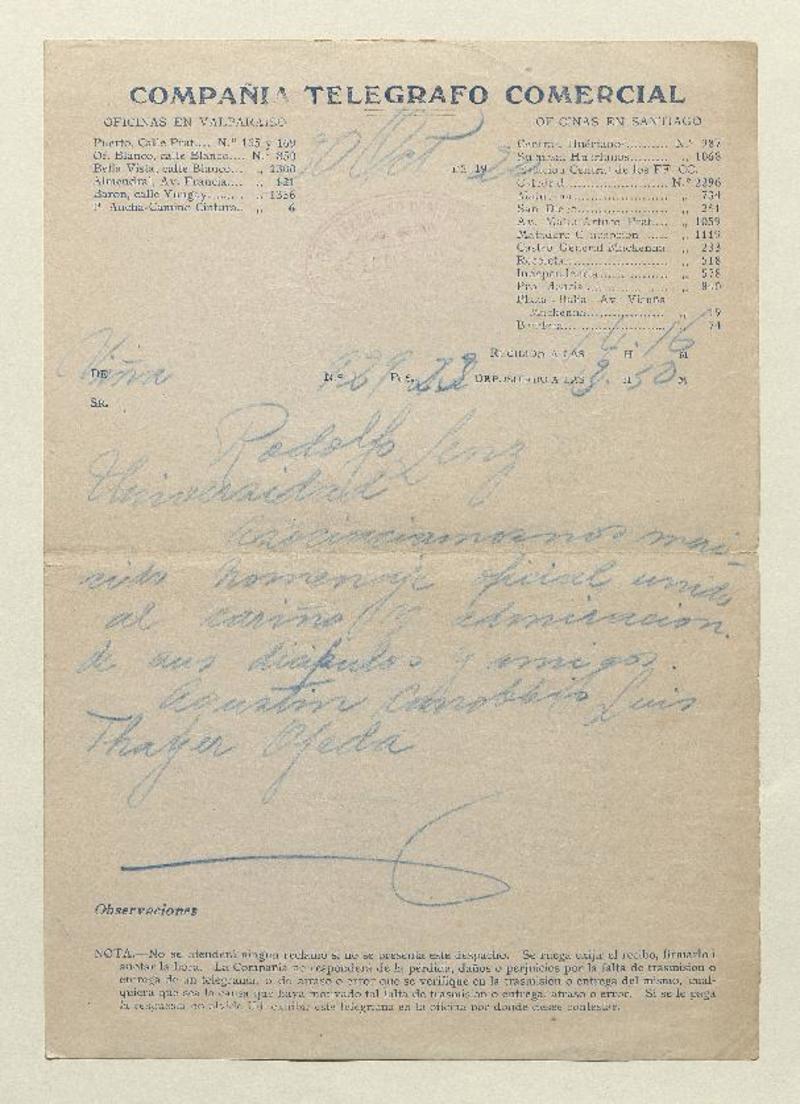 COMPAÑIA TELEGRAFO COMERCIAL
OFICINAS EN VALPARAISO
Puerto, Calle Prat.... N.º 135 y 169
Of. Blanco, calle Blanco.... N.º 850
Bella Vista, calle Blanco... ,, 1300
Almendral, Av. Francia..... ,, 421
Baron, calle Yungay........ ,, 1356
P. Ancha-Camino Cintura.. ,, 6
20 Oct
DE 19
OFICINAS EN SANTIAGO
Central Huérfanos.......... N.º 987
Sucursal Huérfanos......... ,, 1068
Estacion Central de los FF. CC.
N.º 2296
,, 734
San Diego ,, 251
Av. Arturo Prat.... ,, 1059
Matadero ,, 1119
Castro General Mackenna ,, 233
Recoleta ,, 518
Independencia ,, 578
Providencia
Plaza Italia Av. Vicuña
Mackenna
,, 74
RECIBIDO A LAS 14 H 16 M
DE Viña N.º 929 Pes. 23 DEPOSITADO A LAS 13 H 50 M
SR.
Rodolfo Lenz
Universidad
Asociaciamonos mere
cido homenaje oficial unido
al cariño y admiracion
de sus discipulos y amigos.
Agustin Cannobbio Luis
Thayer Ojeda
Observaciones
NOTA.—No se atenderá ningun reclamo si no se presenta este despacho. Se ruega exija el recibo, firmarlo i
anotar la hora. La Compañia no responderá de la perdida, daños o perjuicios por la falta de trasmision o
entrega de un telegrama, o de atraso o error que se verifique en la trasmision o entrega del mismo, cual-
quiera que sea la causa que haya motivado tal falta de trasmision o entrega, atraso o error. Si se le paga
la respuesta no olvide Ud. exhibir este telegrama en la oficina por donde desee contestar.